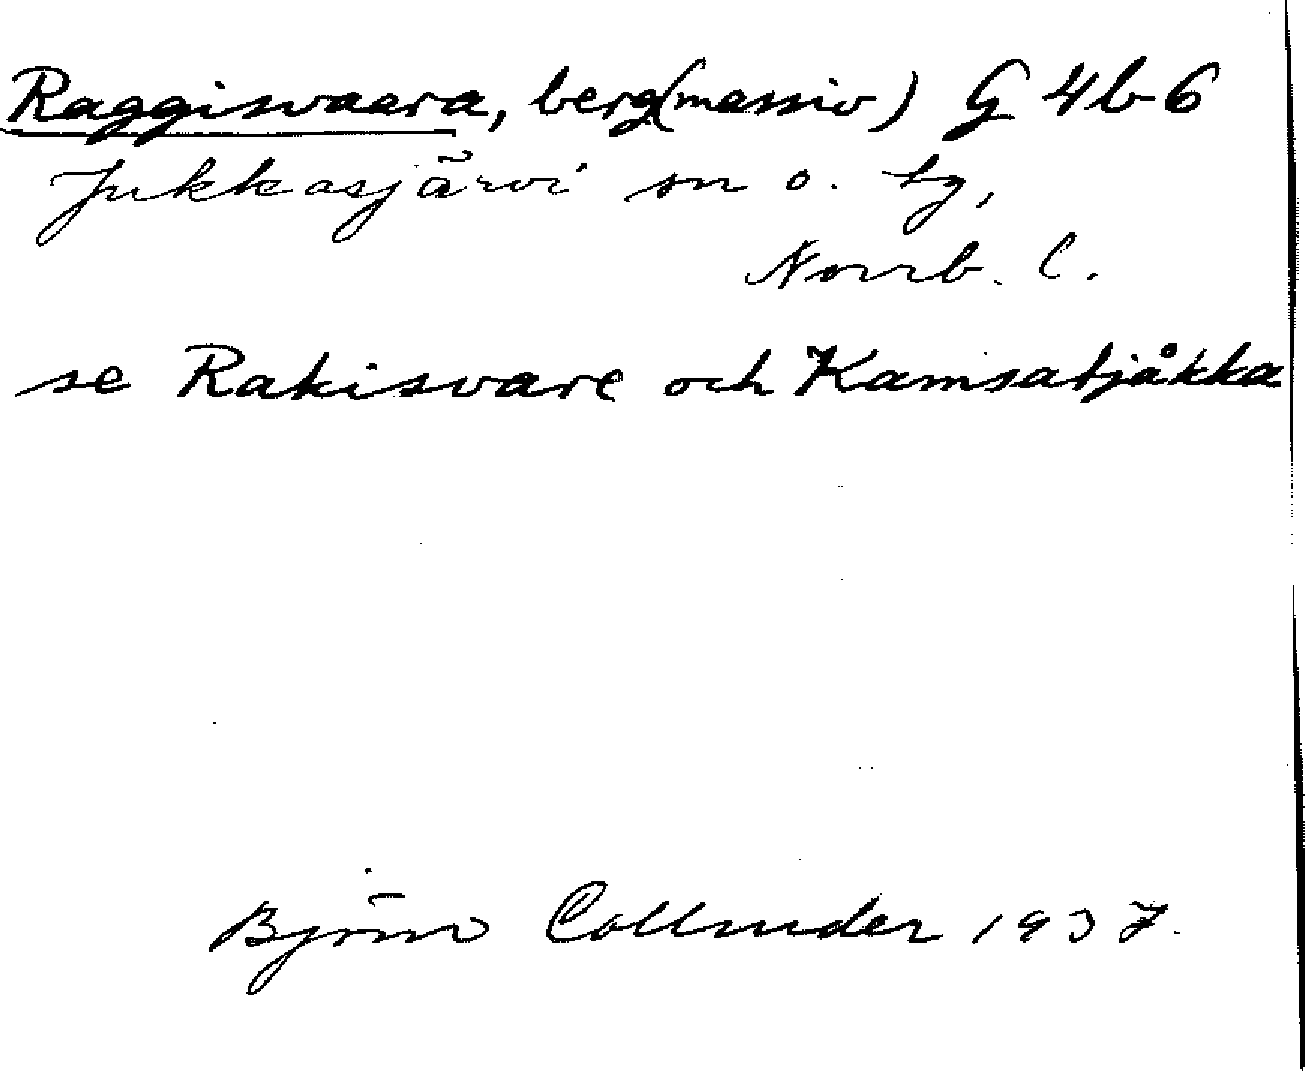 Raggiswaara, berg(massiv) G 4b6
Jukkasjärvi sn o. tg,
Norrb. l.
se Rakisvare och Kamsatjåkka
Björn Collinder 1937.